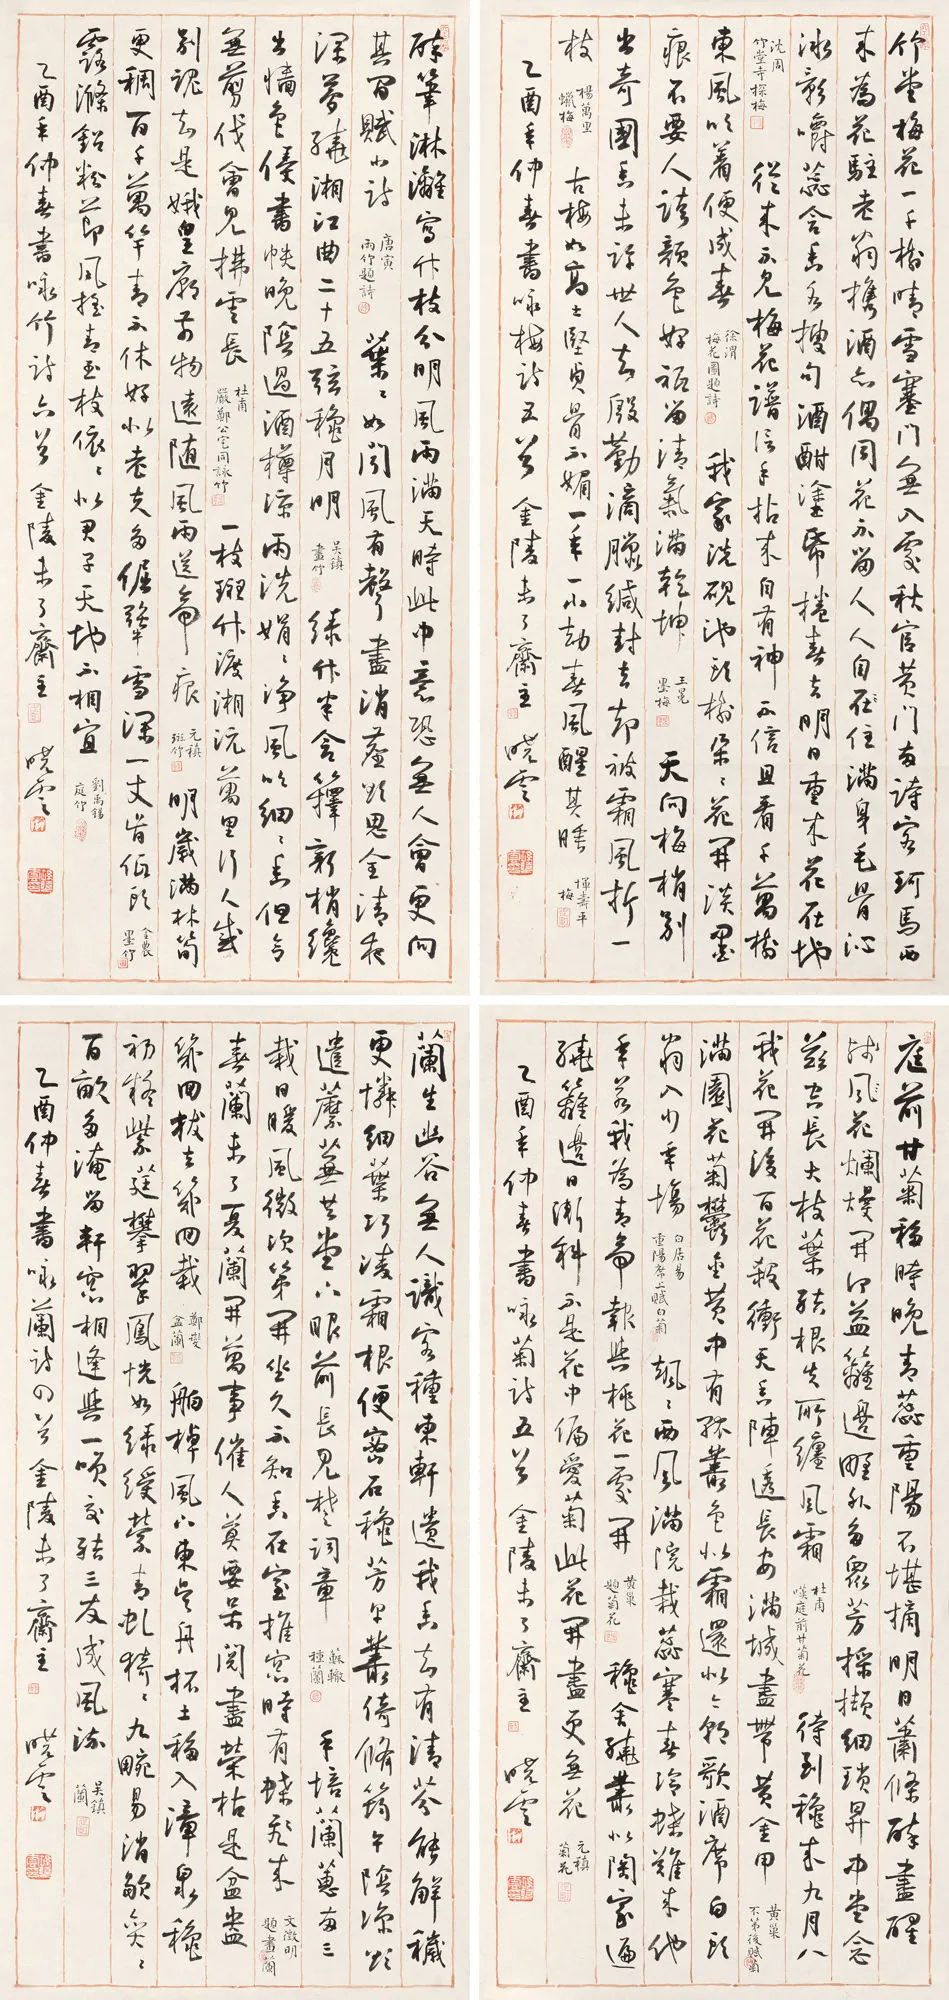 竹堂梅花一千樹晴雪塞門無入處秋官黃門兩詩客珂馬西
來為花駐老翁攜酒亦偶同花不留人人自住滿身毛骨沁
冰影嚼蕊含香各搜句酒酣塗紙捲春去明日重來花在地
沈周 竹堂寺探梅 從來不見梅花譜信手拈來自有神不信且看千萬樹
東風吹着便成春 徐渭 梅花圖題詩 我家洗硯池頭樹朵朵花開淡墨
痕不要人誇顏色好祇留清氣滿乾坤 王冕 墨梅 天向梅梢別
出奇國香未許世人知殷勤滴臘緘封去却被霜風折一
枝 楊萬里 蠟梅 古梅如高士堅貞骨不媚一年一小劫春風醒其睡 惲壽平 梅
乙酉年仲春書咏梅詩五首 金陵未了齋主 曉雲
醉筆淋漓寫竹枝分明風雨滿天時此中意恐無人會更向
其間賦小詩 唐寅 雨竹題詩 葉葉如聞風有聲盡消塵欲思全清夜
深夢繞湘江曲二十五弦穐月明 吳鎮 畫竹 綠竹半含籜新梢纔
出牆色侵書帙晚陰過酒樽涼雨洗娟娟淨風吹細細香但令
無剪伐會見拂雲長 杜甫 嚴鄭公宅同詠竹 一枝斑竹渡湘沅萬里行人感
別魂知是娥皇廟前物遠隨風雨送啼痕 元稹 斑竹 明歲滿林筍
更稠百千萬竿青不休好似老夫多倔強雪深一丈肯低頭 金農 墨竹
露滌鉛粉節風搖青玉枝依依似君子無地不相宜 劉禹錫 庭竹
乙酉年仲春書咏竹詩六首 金陵未了齋主 曉雲
庭前甘菊移時晚青蕊重陽不堪摘明日蕭條醉盡醒
殘花爛熳開何益籬邊野外多眾芳採擷細瑣昇中堂念
茲空長大枝葉結根失所纏風霜 杜甫 嘆庭前甘菊花 待到穐來九月八
我花開後百花殺衝天香陣透長安滿城盡帶黃金甲 黃巢 不第後賦菊
滿園花菊鬱金黃中有孤叢色似霜還似今朝歌酒席白頭
翁入少年場 白居易 重陽席上賦白菊 颯颯西風滿院栽蕊寒香冷蝶難來他
年若我為青帝報與桃花一處開 黃巢 題菊花 穐舍繞叢似陶家遍
繞籬邊日漸斜不是花中偏愛菊此花開盡更無花 元稹 菊花
乙酉年仲春書咏菊詩五首 金陵未了齋主 曉雲
蘭生幽谷無人識客種東軒遺我香知有清芬能解穢
更憐細葉巧凌霜根便密石穐芳早叢倚脩筠午陰涼欲
遣蘼蕪共堂下眼前長見楚詞章 蘇轍 種蘭 手培蘭蕙兩三
栽日暖風微次第開坐久不知香在室推窗時有蝶飛來 文徵明 題畫蘭
春蘭未了夏蘭開萬事催人莫要呆閱盡榮枯是盆盎
幾回拔去幾回栽 鄭燮 盆蘭 舶棹風下東吳舟杯土移入漳泉穐
初疑紫莛攀翠鳳恍如綠綬縈青虬猗猗九畹易消歇奕奕
百畝多淹留軒窗相逢與一笑交結三友成風流 吳鎮 蘭
乙酉仲春書咏蘭詩四首 金陵未了齋主 曉雲